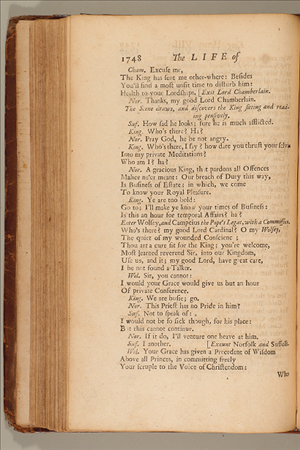 1748 The LIFE of
Cham. Excuse me,
The King has sent me other-where: Besides
You'll find a most unfit time to disturb him:
Health to your Lordships. [Exit Lord Chamberlain.
Nor. Thanks, my good Lord Chamberlain.
The Scene draws, and discovers the King sitting and read-
ing pensively.
Suf. How sad he looks; sure he is much afflicted.
King. Who's there? Ha?
Nor. Pray God, he be not angry.
King. Who's there, I say? how dare you thrust your selves
Into my private Meditations?
Who am I? ha?
Nor. A gracious King, that pardons all Offences
Malice ne'er meant: Our breach of Duty this way,
Is Business of Estate; in which, we come
To know your Royal Pleasure.
King. Ye are too bold:
Go too; I'll make ye know your times of Business:
Is this an hour for temporal Affairs? ha?
Enter Wolsey, and Campeius the Pope's Legat, with a Commission.
Who's there? my good Lord Cardinal? O my Wolsey,
The quiet of my wounded Conscience;
Thou art a cure fit for the King; you're welcome,
Most learned reverend Sir, into our Kingdom,
Use us, and it; my good Lord, have great care,
I be not found a Talker.
Wol. Sir, you cannot:
I would your Grace would give us but an hour
Of private Conference.
King. We are busie; go.
Nor. This Priest has no Pride in him?
Suf. Not to speak of:
I would not be so sick though, for his place:
But this cannot continue.
Nor. If it do, I'll venture one heave at him.
Suf. I another. [Exeunt Norfolk and Suffolk.
Wol. Your Grace has given a Precedent of Wisdom
Above all Princes, in committing freely
Your scruple to the Voice of Christendom:
Who